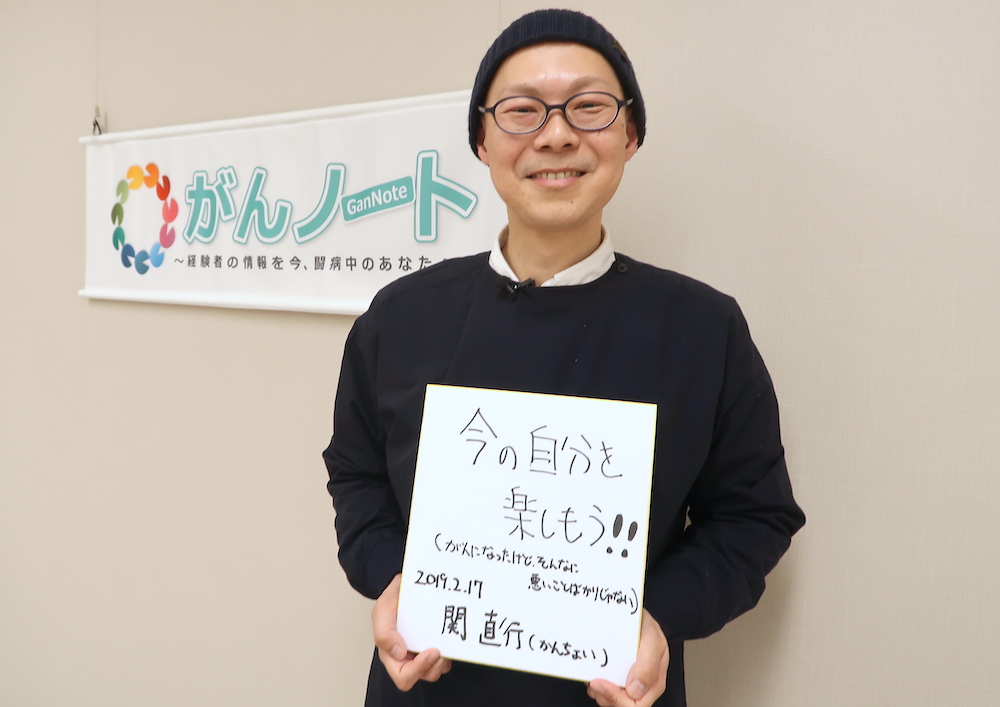 がんノート
GanNote
～経験者の情報を今、闘病中のあなた
今の自分を
楽しもう!!
(がんになったけど、そんなに
悪いことばかりじゃない)
2019.2.17
関 直行(かんちょい)